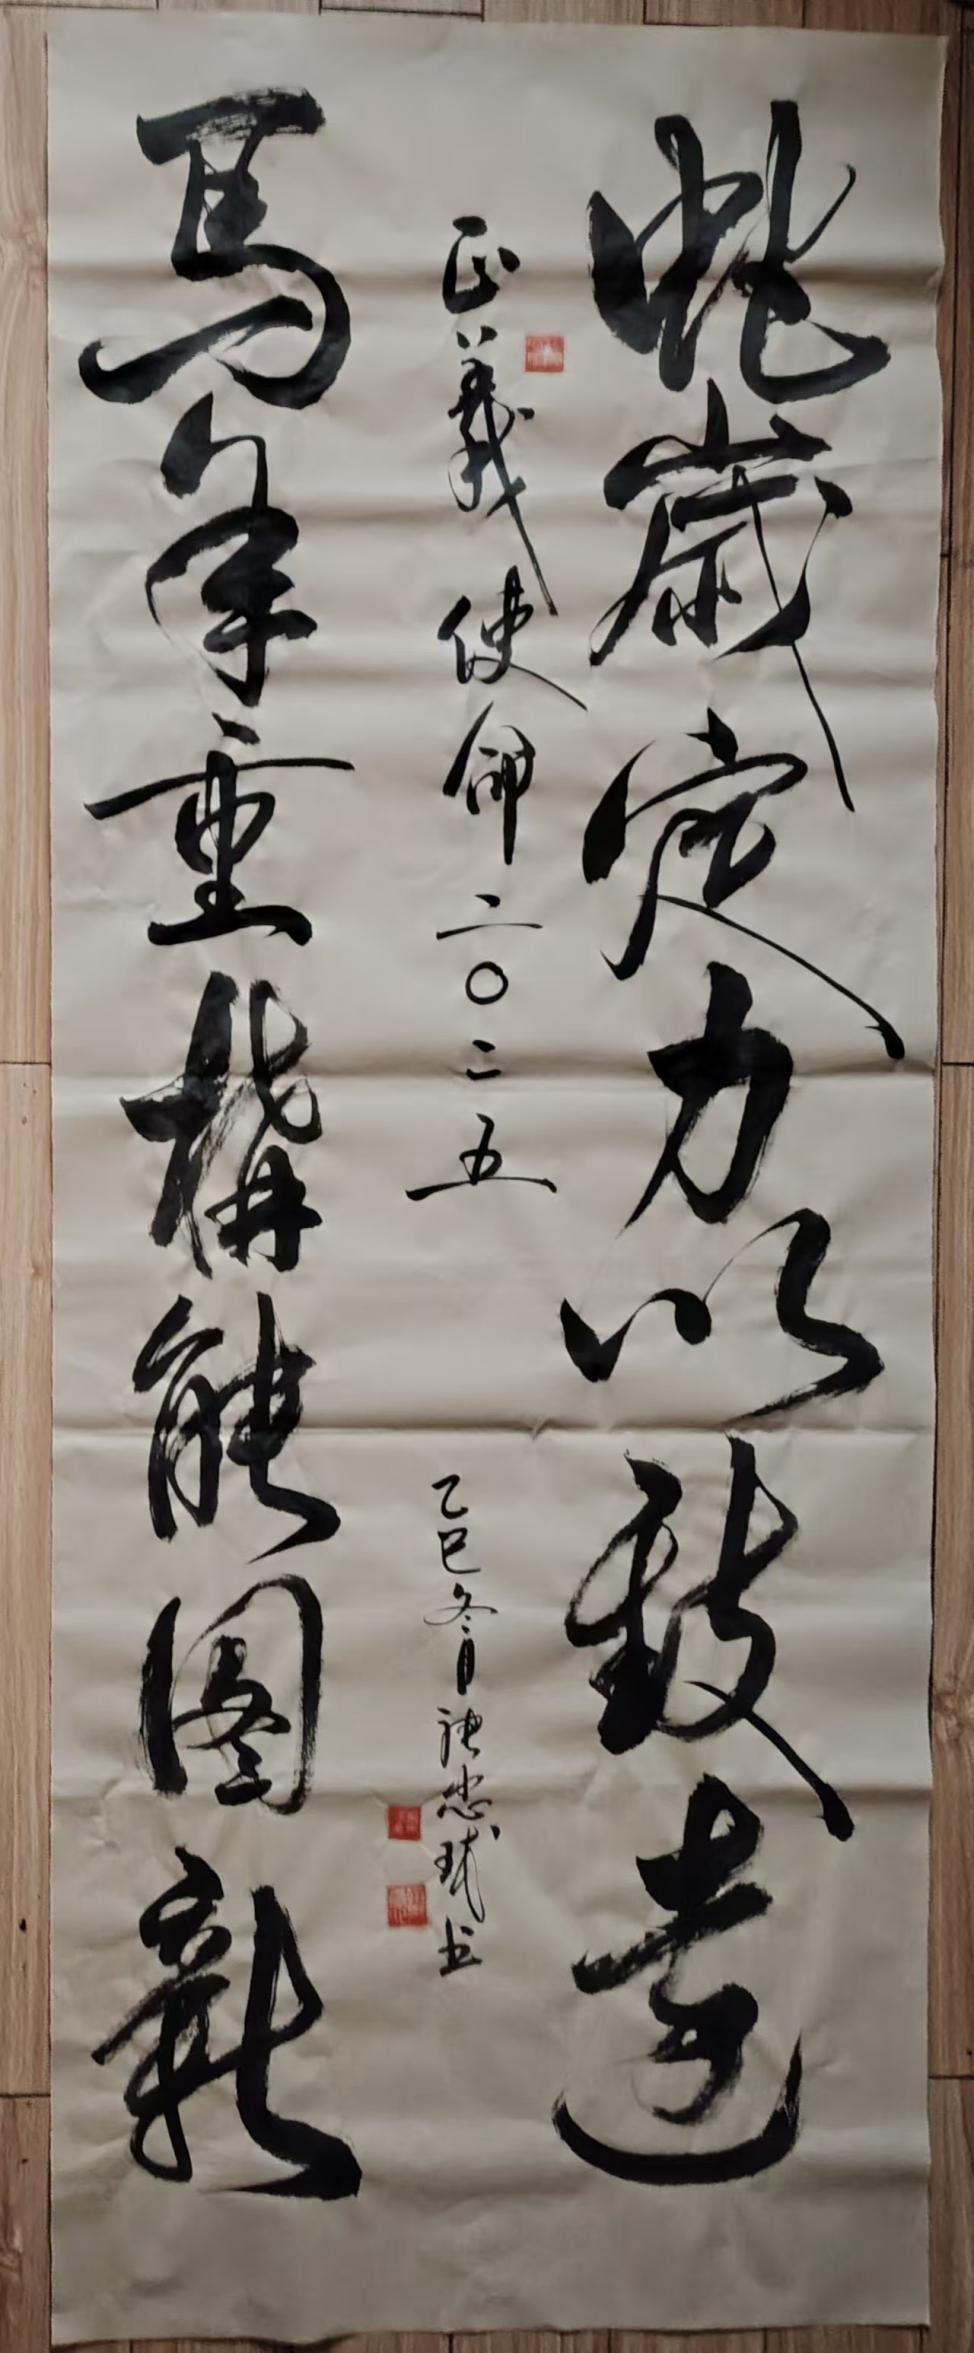 蛇歲定力以致遠
正義使命二〇二五
乙巳冬月 忠 书
馬年重構能图新